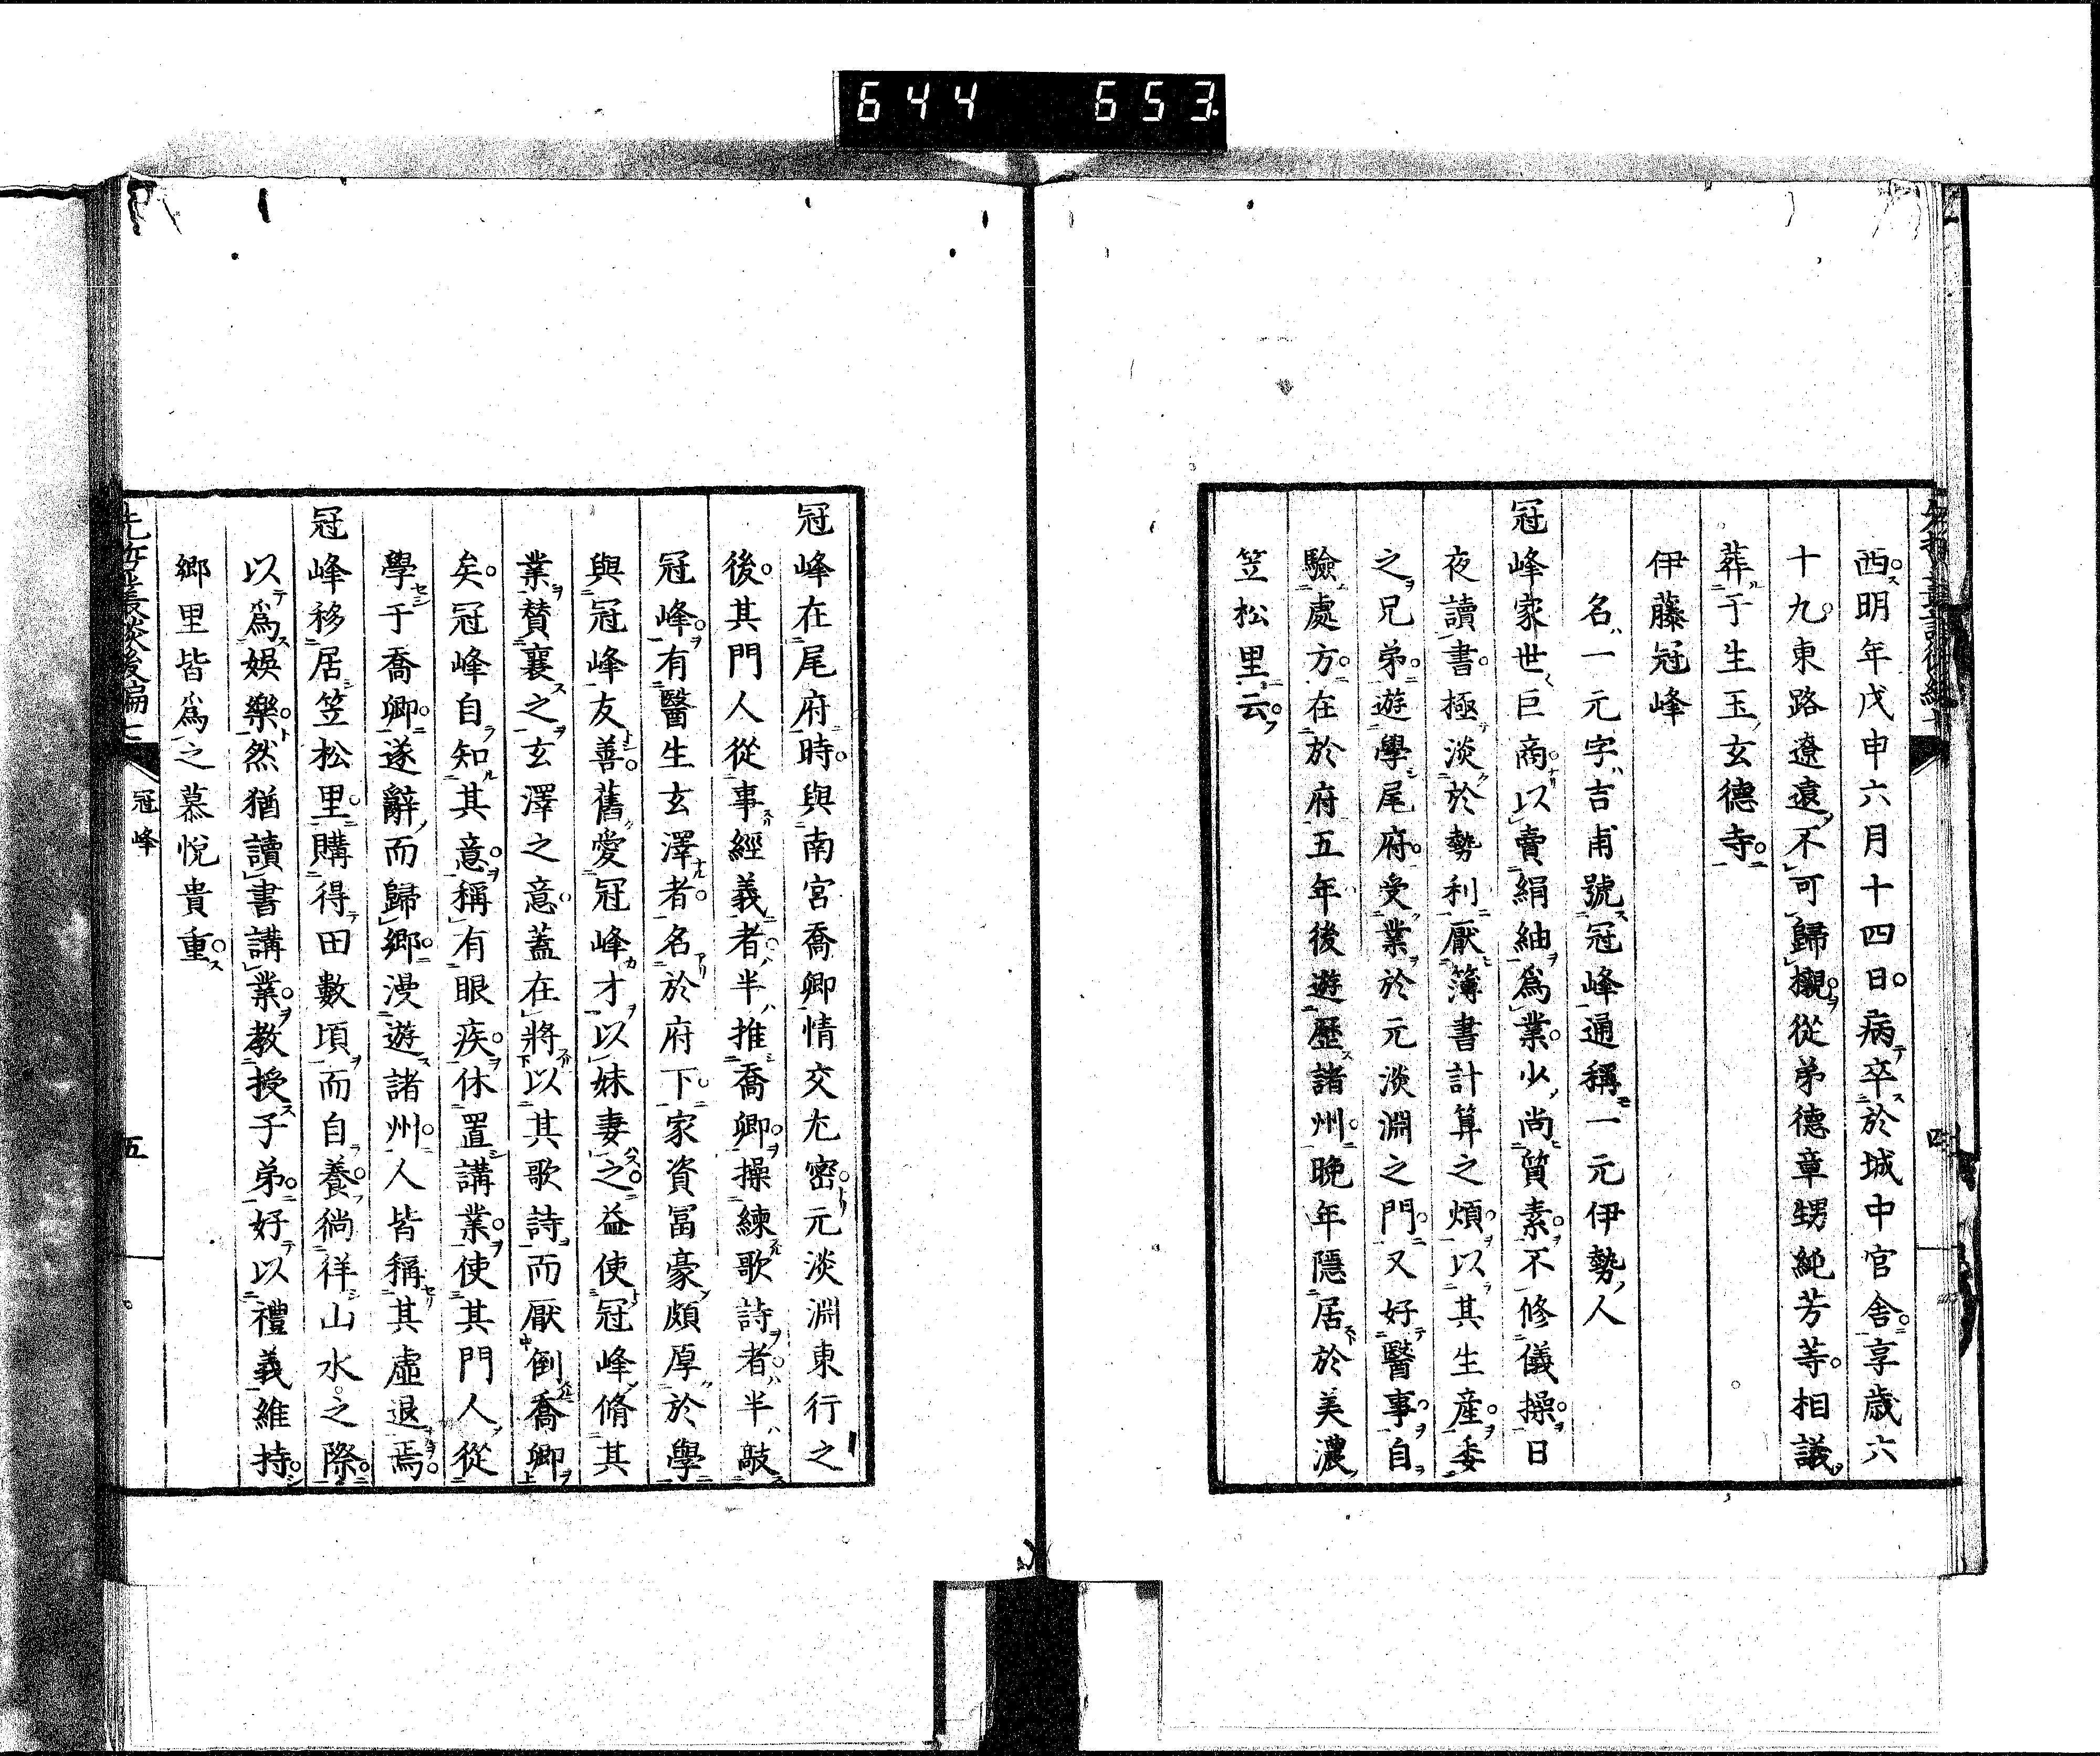 644 653
西明年戊申六月十四日病卒於城中官舍享歲六
十九東路遼遠不可歸櫬從弟德章甥純芳等相議
葬于生玉玄德寺
伊藤冠峰
名一元字吉甫號冠峰通稱一元伊勢人
冠峰家世巨商以賣絹紬爲業少尚質素不修儀操日
夜讀書極淡於勢利厭簿書計算之煩以其生產委
之兄弟遊學尾府受業於元淡淵之門又好醫事自
驗處方在於府五年後遊歷諸州晚年隱居於美濃
笠松里云
冠峰在尾府時與南宮喬卿情交尤密元淡淵東行之
後其門人從事經義者半推喬卿操練歌詩者半敲
冠峰有醫生玄澤者名於府下家資冨豪頗厚於學
與冠峰友善舊愛冠峰才以妹妻之益使冠峰脩其
業贊襄之玄澤之意蓋在將以其歌詩而厭倒喬卿
矣冠峰自知其意稱有眼疾休置講業使其門人從
學于喬卿遂辭而歸鄉漫遊諸州人皆稱其虛退焉
冠峰移居笠松里購得田數頃而自養徜徉山水之際
以爲娛樂然猶讀書講業教授子弟好以禮義維持
鄉里皆爲之慕悅貴重
先哲叢談後編七 冠峰 五